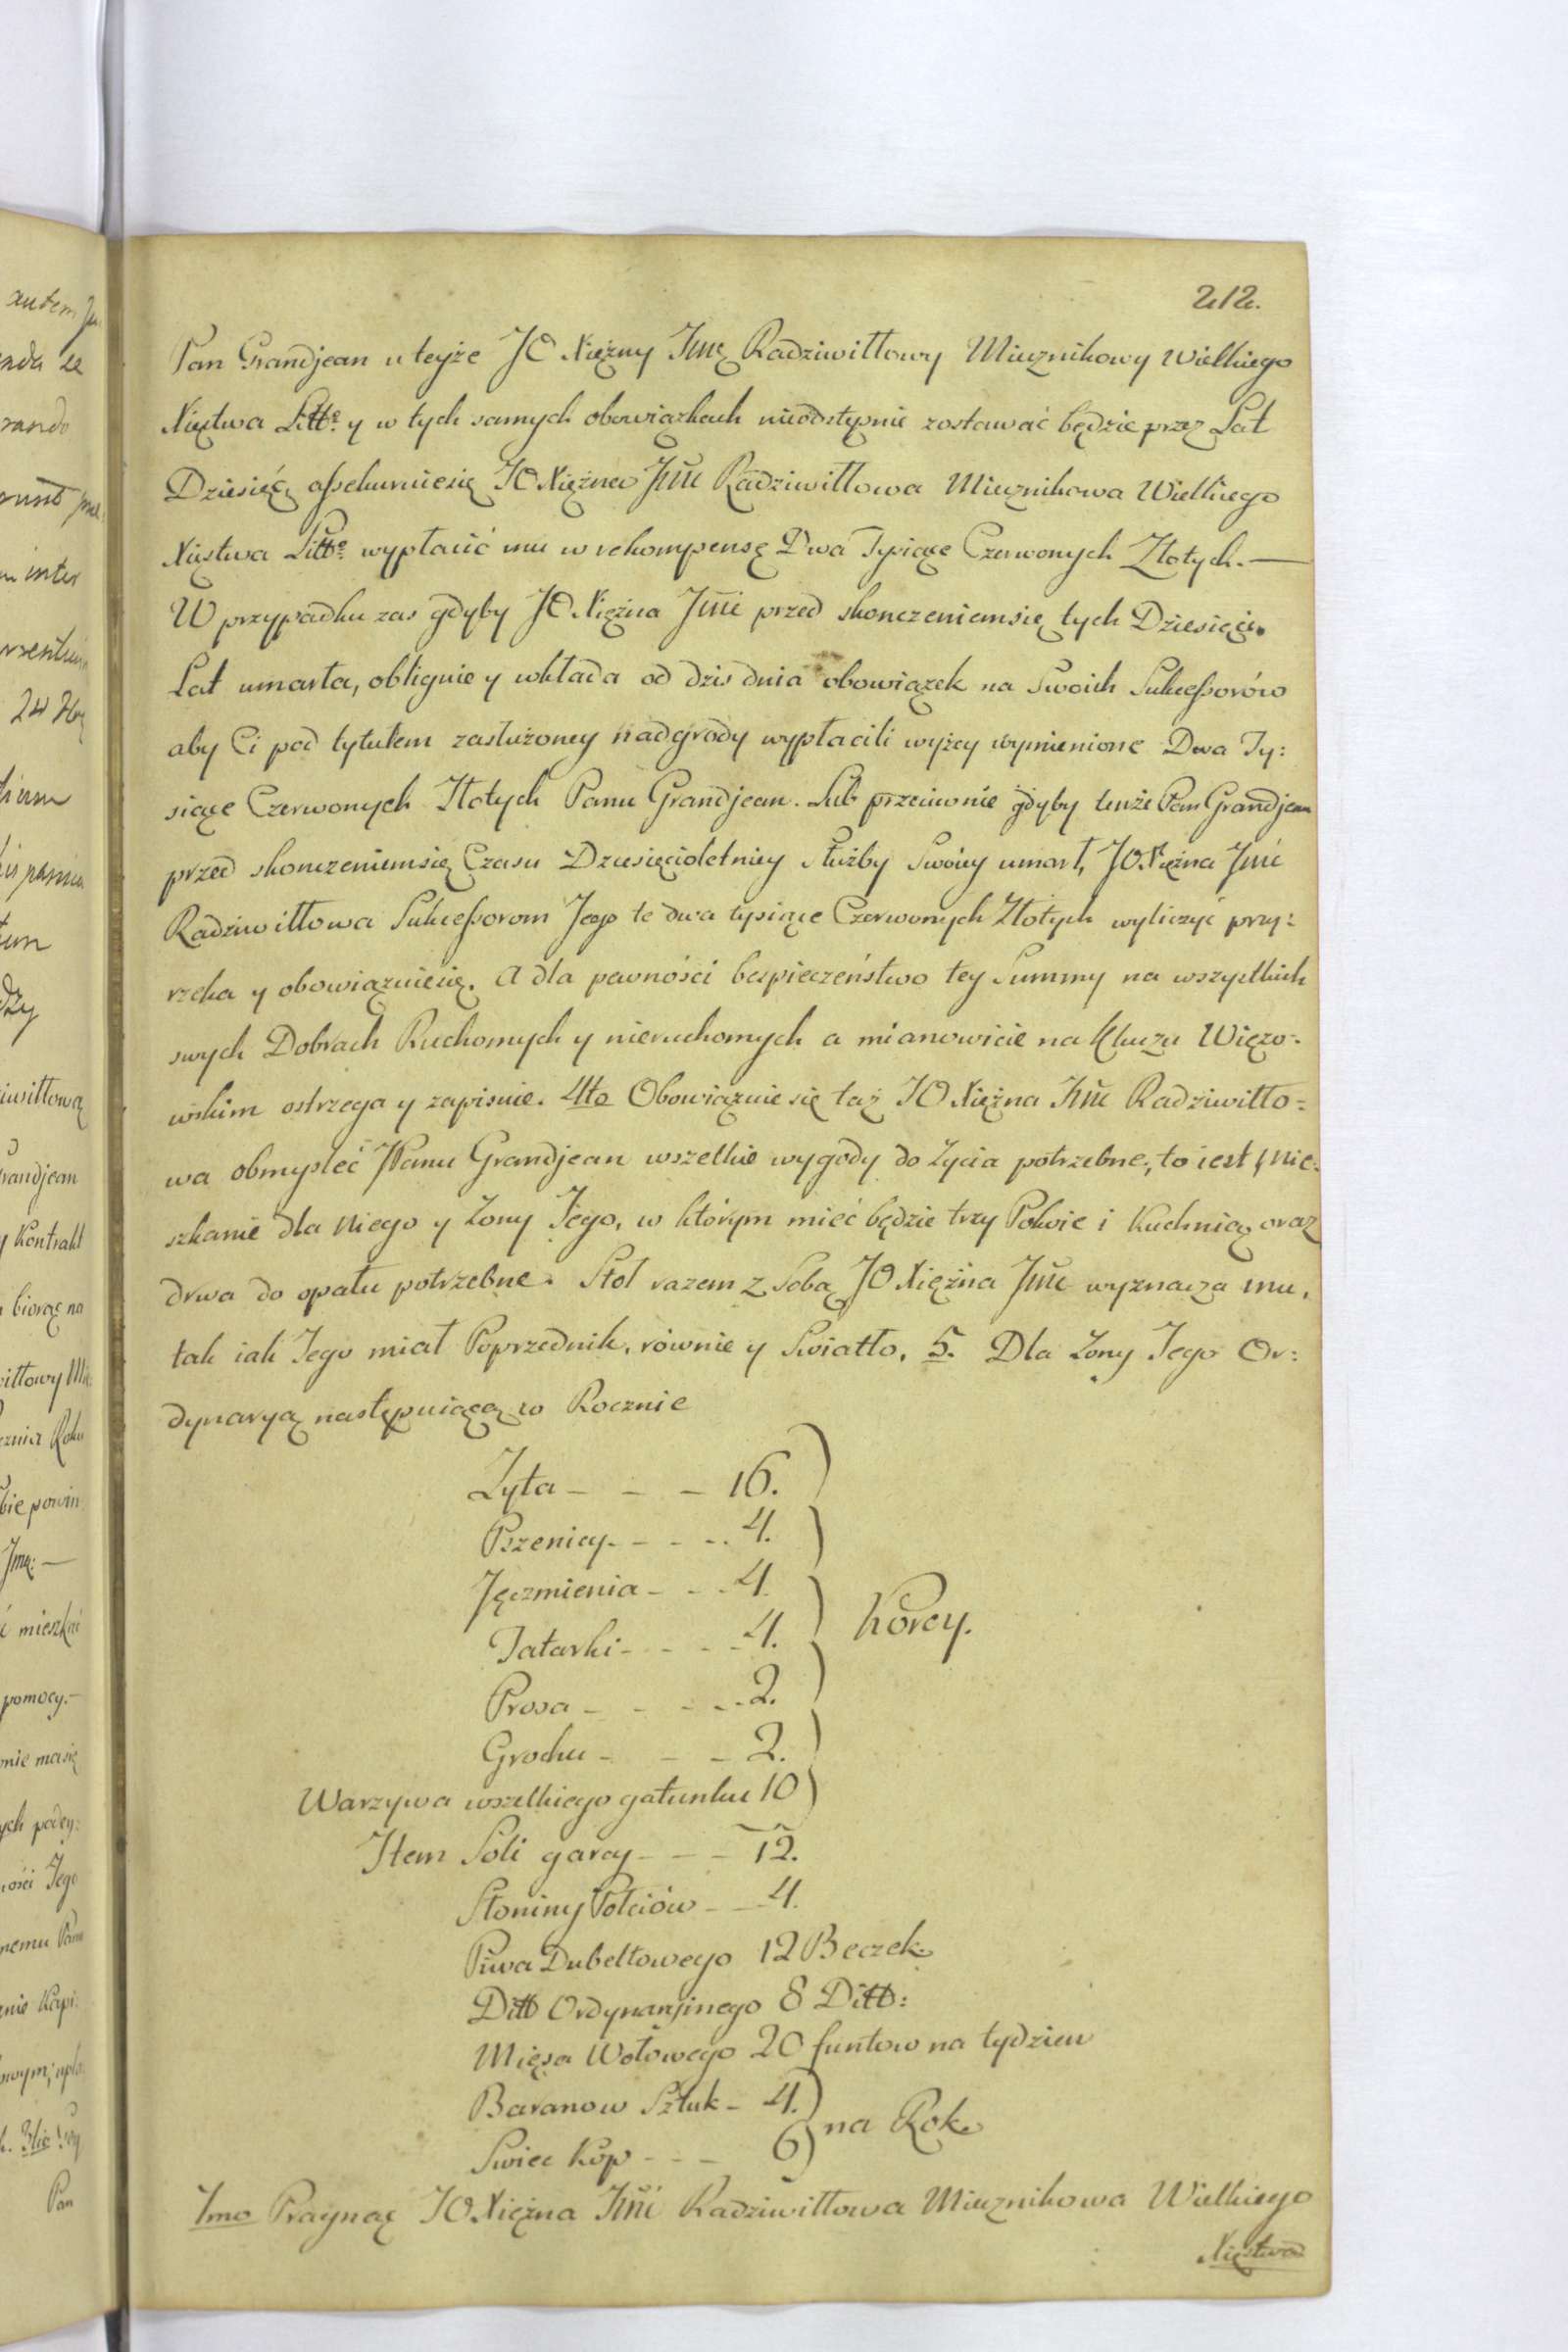 212.
Pan Grandjean u teyże JO Xiężny Jmę Radziwiłłowy Miecznikowy Wielkiego
Xięstwa Litt. y w tych samych obowiązkach nieodstępnie zostawać będzie przez Lat
Dziesięć, assekuruiesię JO Xiężna Jmć Radziwiłłowa Miecznikowa Wielkiego
Xięstwa Litt. wypłacić mu w rekompensę Dwa Tysiące Czerwonych Złotych. —
W przypadku zas gdyby JO Xiężna Jmć przed skonczeniemsię tych Dziesięciu
Lat umarła, obliguie y wkłada od dzis dnia obowiązek na Swoich Sukcessorów
aby Ci pod tytułem zasłużoney nadgrody wypłacili wyżey wymienione Dwa Ty:
siące Czerwonych Złotych Panu Grandjean. Lub przeciwnie gdyby tenże Pan Grandjean
przed skonczeniemsię Czasu Dziesięcioletniey Służby Swoiey umarł, JO Xiężna Jmć
Radziwiłłowa Sukcessorom Jego te dwa tysiące Czerwonych Złotych wyliczyć przy:
rzeka y obowiązuiesię. A dla pewności bespieczeństwo tey Summy na wszystkich
swych Dobrach Ruchomych y nieruchomych a mianowicie na Kluczu Więzo:
wskim ostrzega y zapisuie. 4to Obowiązuie się taż JO Xiężna Jmć Radziwiłło:
wa obmysleć JPanu Grandjean wszelkie wygody do życia potrzebne, to iest mie:
szkanie dla niego y Zony Jego, w którym mieć będzie trzy Pokoie i Kuchnią oraz
drwa do opału potrzebne. Stoł razem z Sobą JO Xiężna Jmć wyznacza mu,
tak iak Jego miał Poprzednik, równie y Swiatło. 5. Dla Zony Jego Or:
dynaryą następuiącą co Rocznie
Zyta - - - 16.
Pszenicy - - - 4.
Jęczmienia - - 4.
Tatarki - - - 4.
Korcy.
Prosa - - - 2.
Grochu - - - 2.
Warzywa wszelkiego gatunku 10
Item Soli garcy - - - 12.
Słoniny Połciów - - 4.
Piwa Dubeltowego 12 Beczek
Ditto Ordynaryinego 8 Ditto:
Mięsa Wołowego 20 funtow na tydzien
Baranow Sztuk - 4.
na Rok
Swiec kop - - - 6
Imo Pragnąc JO Xiężna Jmć Radziwiłłowa Miecznikowa Wielkiego
Xięstwa